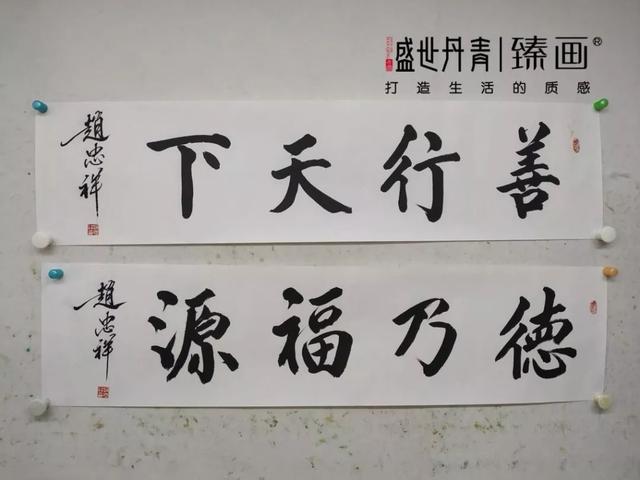 盛世丹青|臻画®
打造生活的质感
善行天下
趙忠祥
德乃福源
趙忠祥